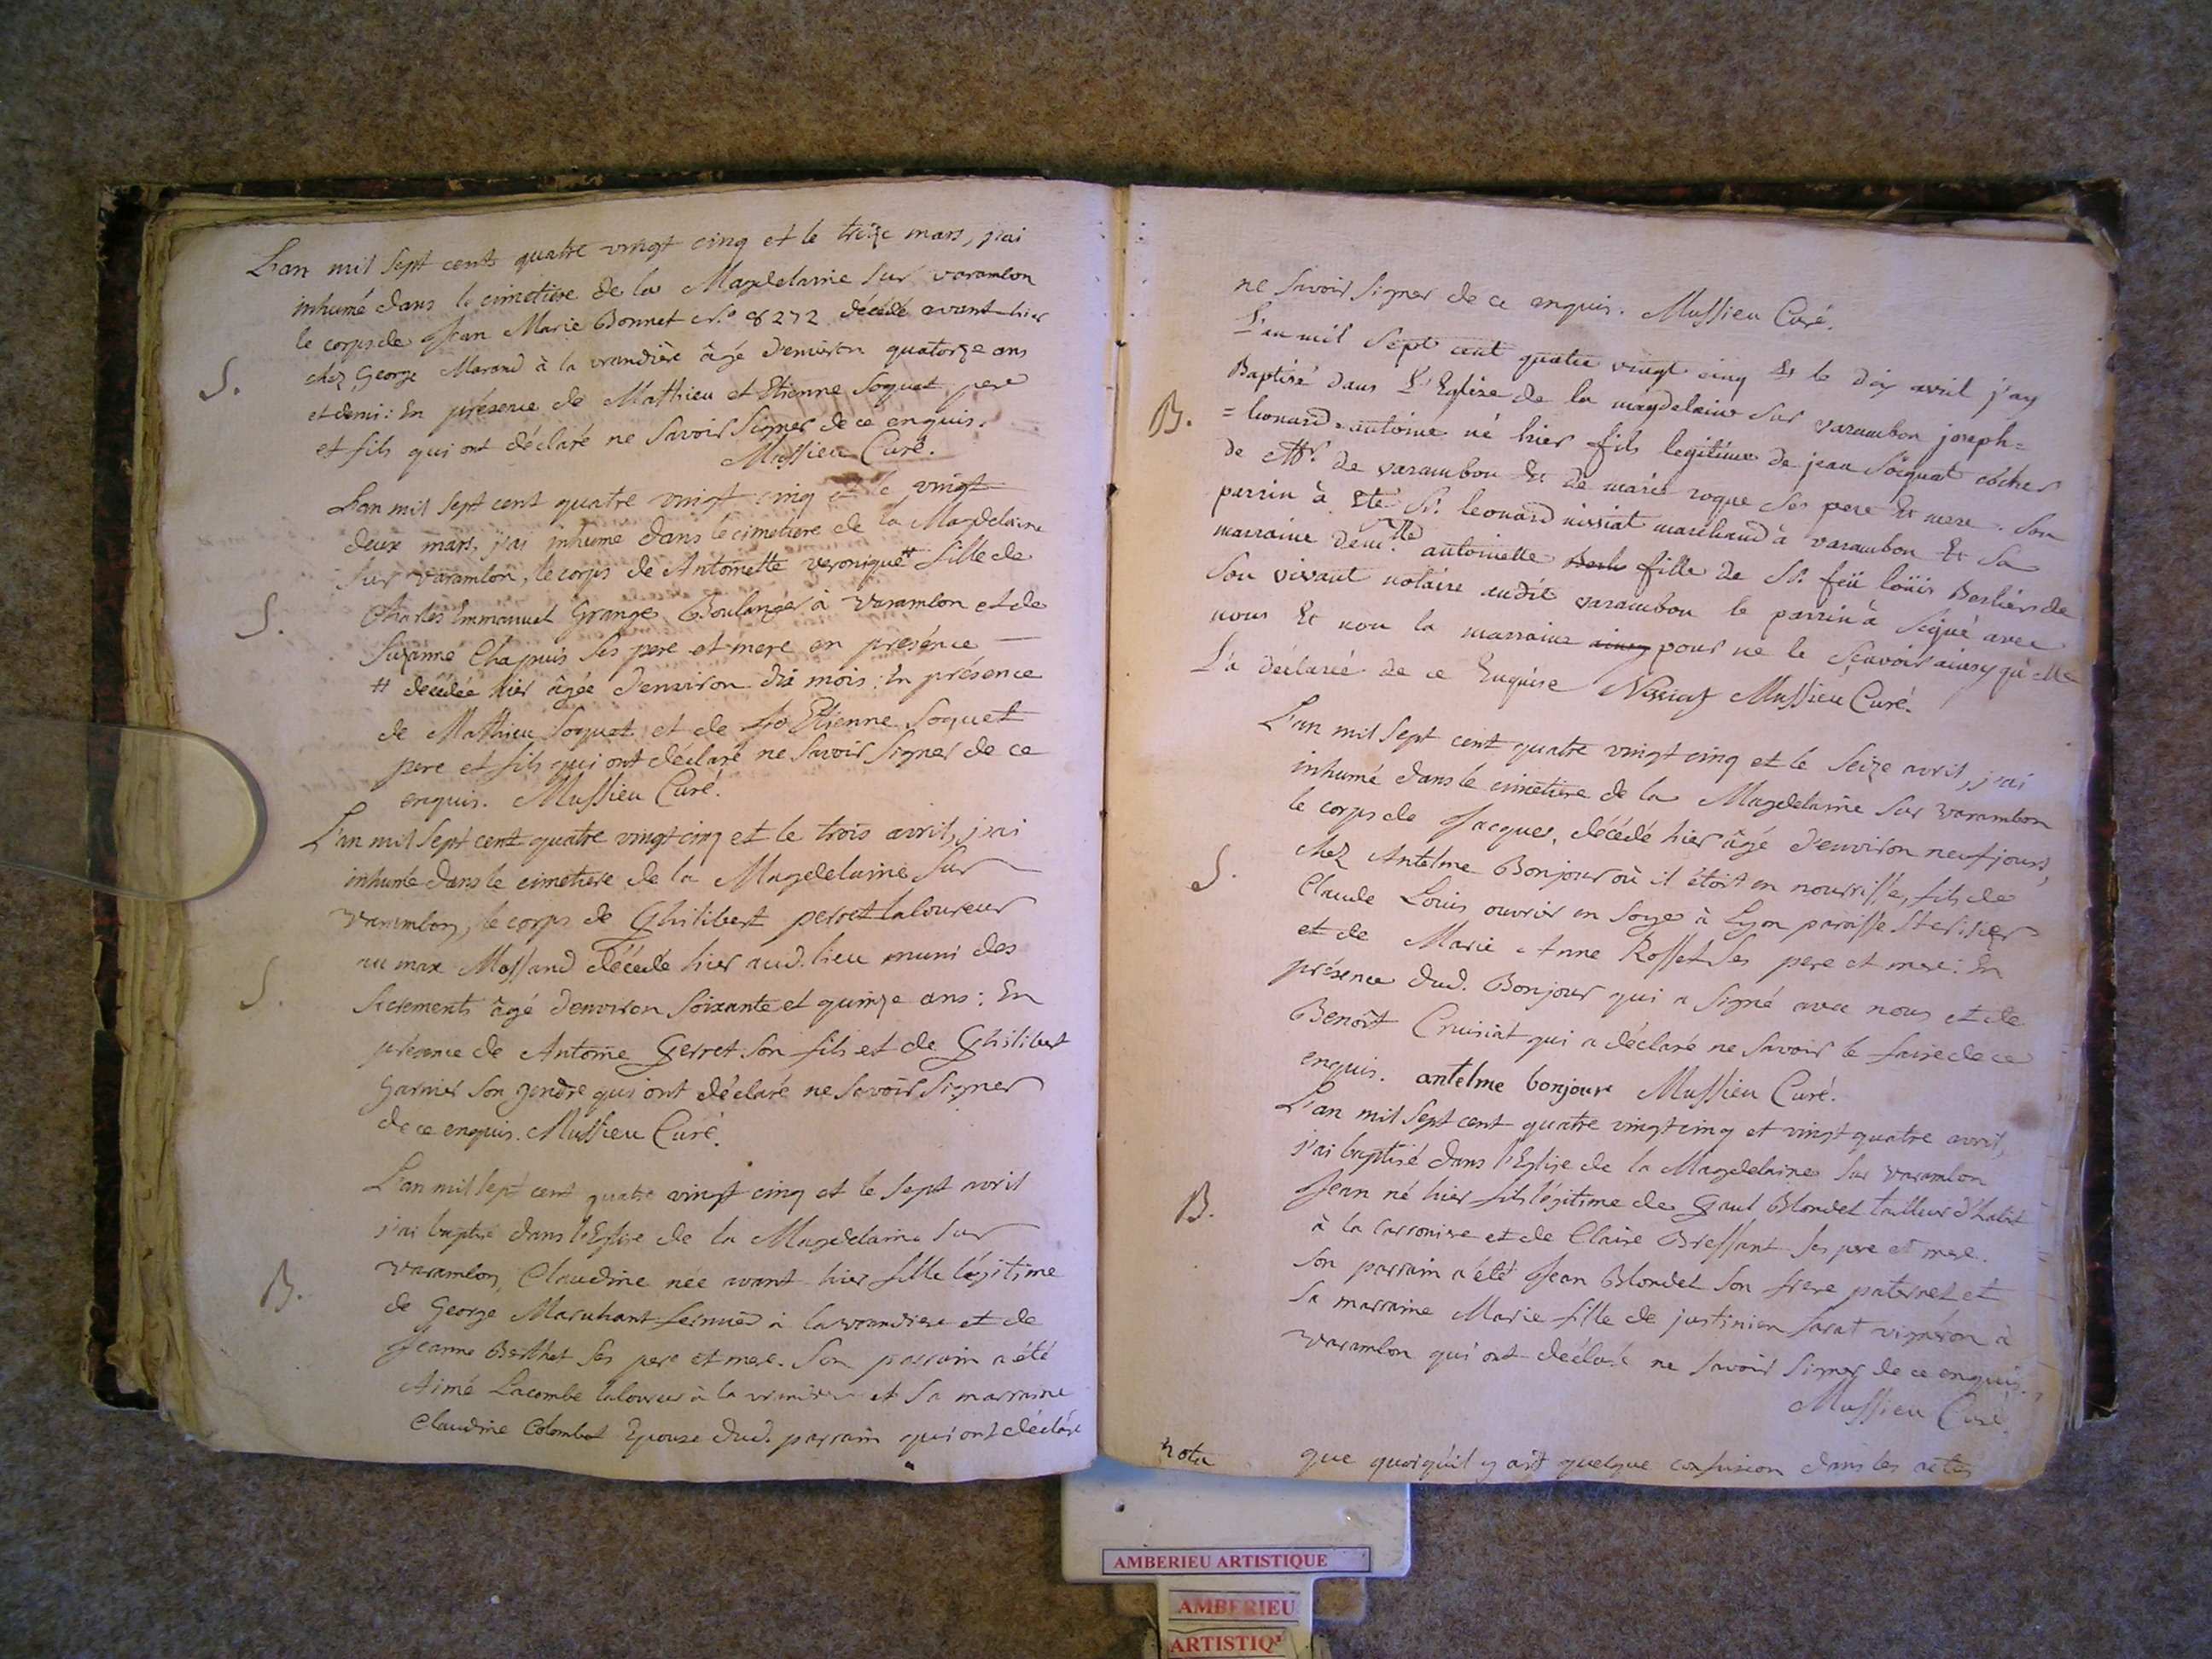 L'an mil sept cents quatre vingt cinq et le treize mars, j'ai
inhumé dans le cimetiere de la Magdelaine sur varambon
le corps de Jean Marie Bonnet N.o 8272 décédé avant-hier
chez George Marand à la vrandière âgé d'environ quatorze ans
S.
et demi: En présence de Mathieu et Etienne Soquet pere
et fils qui ont déclaré ne savoir signer de ce enquis.
Mussieu Curé.
L'an mil sept cent quatre vingt cinq et le vingt
deux mars, j'ai inhumé dans le cimetiere de la Magdelaine
sur varambon, le corps de Antoinette veronique # fille de
Charles Emmanuel Grange Boulanger à varambon et de
S.
Suzanne Chapuis ses pere et mere en présence
# décédée hier âgée d'environ dix mois: En présence
de Mathieu Soquet et de Etienne Soquet
pere et fils qui ont déclaré ne savoir signer de ce
enquis. Mussieu Curé.
L'an mil sept cent quatre vingt cinq et le trois avril, j'ai
inhumé dans le cimetiere de la Magdelaine sur
varambon, le corps de Philibert perret laboureur
au max décédé hier aud. lieu muni des
S.
sacrements âgé d'environ soixante et quinze ans: En
présence de Antoine Perret son fils et de Philibert
Garnier son gendre qui ont déclaré ne savoir signer
de ce enquis. Mussieu Curé.
L'an mil sept cent quatre vingt cinq et le sept avril
j'ai baptisé dans l'Eglise de la Magdelaine sur
varambon, Claudine née avant-hier fille légitime
B.
de George fermier à la vrandiere et de
Jeanne Berthet ses pere et mere. Son parrain a été
Aimé Lacombe laboureur à la et sa marraine
Claudine Colombet Epouse dud. parrain qui ont déclaré
ne savoir signer de ce enquis. Mussieu Curé.
L'an mil sept cent quatre vingt cinq Et le dix avril j'ay
Baptisé dans L'Eglise de la magdelaine sur varambon joseph=
B.
=leonard=antoine né hier fils legitime de jean Soquat cocher
de Mr. de varambon Et de marie roque ses pere Et mere. Son
parrin à Eté Sr. leonard nissiat marchand à varambon Et sa
marraine demlle antoinette fille de Sr. feü loüis Berlier de
son vivant notaire audit varambon le parrin à signé avec
nous Et non la marraine pour ne le sçavoir ainsy qu'elle
L'a déclarée de ce Enquise Nissiat Mussieu Curé.
L'an mil sept cent quatre vingt cinq et le seize avril, j'ai
inhumé dans le cimetiere de la Magdelaine sur varambon
le corps de Jacques, décédé hier âgé d'environ neuf jours,
chez Antelme Bonjour où il étoit en nourrisse, fils de
S.
Claude Louis ouvrier en soye à Lyon paroisse St Nisier
et de Marie Anne Rosset ses pere et mere: En
présence dud. Bonjour qui a signé avec nous et de
Benoît Cruisiat qui a déclaré ne savoir le faire de ce
enquis. antelme bonjour Mussieu Curé.
L'an mil sept cent quatre vingt cinq et vingt quatre avril,
j'ai baptisé dans l'Eglise de la Magdelaine sur varambon
B.
Jean né hier fils légitime de Paul Blondet tailleur d'habit
à la carronière et de Claire Bressant ses pere et mere.
Son parrain a été Jean Blondet son frere paternel et
sa marraine Marie fille de justinien Sarat vigneron à
varambon qui ont déclaré ne savoir signer de ce enquis.
Mussieu Curé.
nota que quoiqu'il y ait quelque confusion dans les actes
AMBERIEU ARTISTIQUE
AMBERIEU
ARTISTIQ